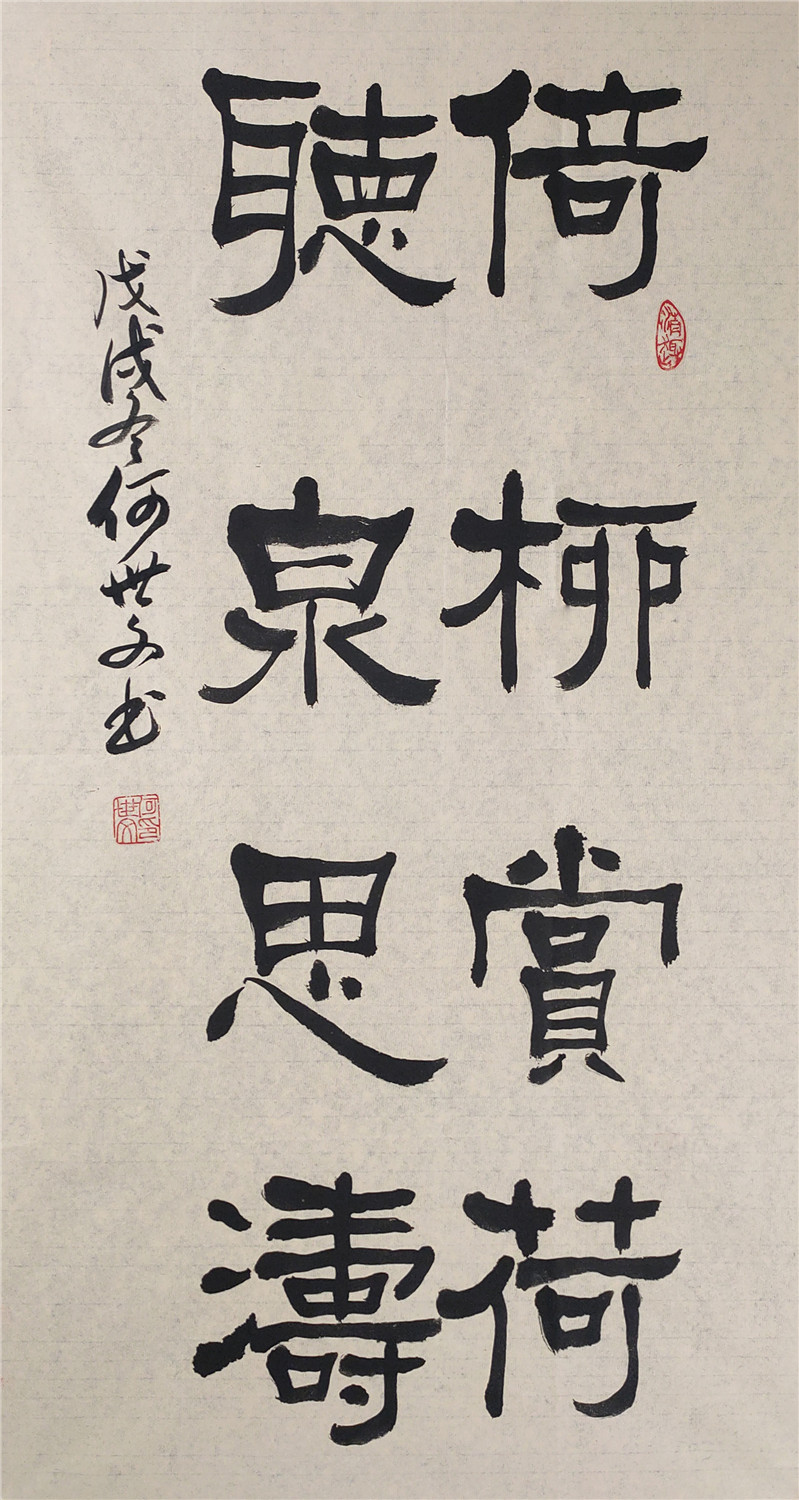 倚柳賞荷
聽泉思濤
戊戌冬何世文书